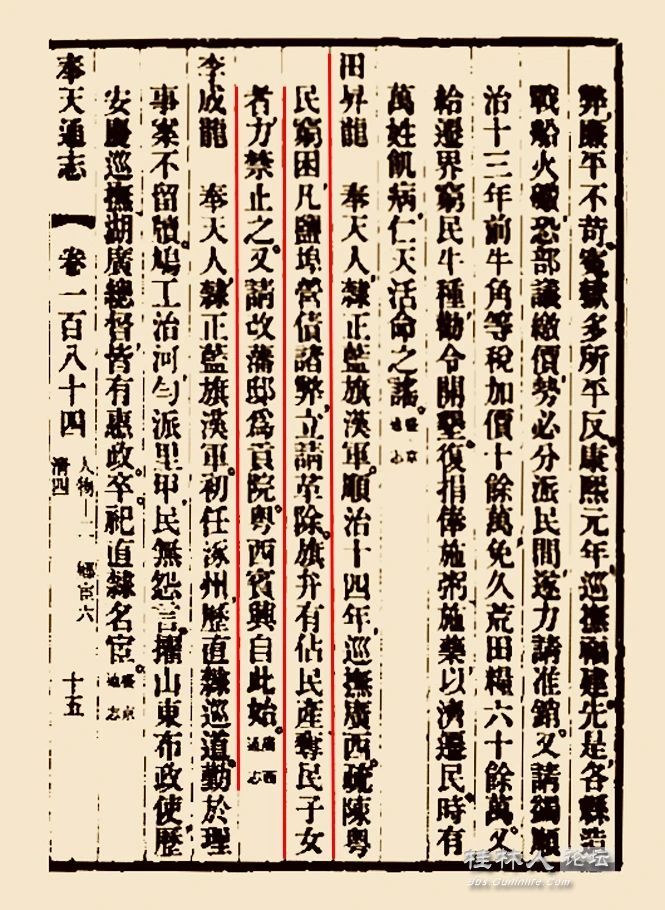 弊廉平不苛冤獄多所平反康熙元年巡撫福建先是各縣造
戰船火礮恐部議繳價勢必分派民間遂力請准銷又請蠲順
治十三年前牛角等稅加價十餘萬免久荒田糧六十餘萬又
給遷界窮民牛種勸令開墾復捐俸施粥施藥以濟遷民時有
萬姓飢病仁天活命之謠。盛京通志
田昇龍 奉天人隸正藍旗漢軍順治十四年巡撫廣西疏陳粵
民窮困凡鹽埠營債諸弊立請革除旗弁有佔民產奪民子女
者力禁止之又請改藩邸為貢院粵西賓興自此始。廣西通志
李成龍 奉天人隸正藍旗漢軍初任涿州歷直隸巡道勤於理
事案不留牘鳩工治河勻派里甲民無怨言擢山東布政使歷
安慶巡撫湖廣總督皆有惠政卒祀直隸名宦。盛京通志
奉天通志 卷一百八十四 人物十二 鄉宦六 清四 十五
桂林人论坛
bbs.Guilinlife.com